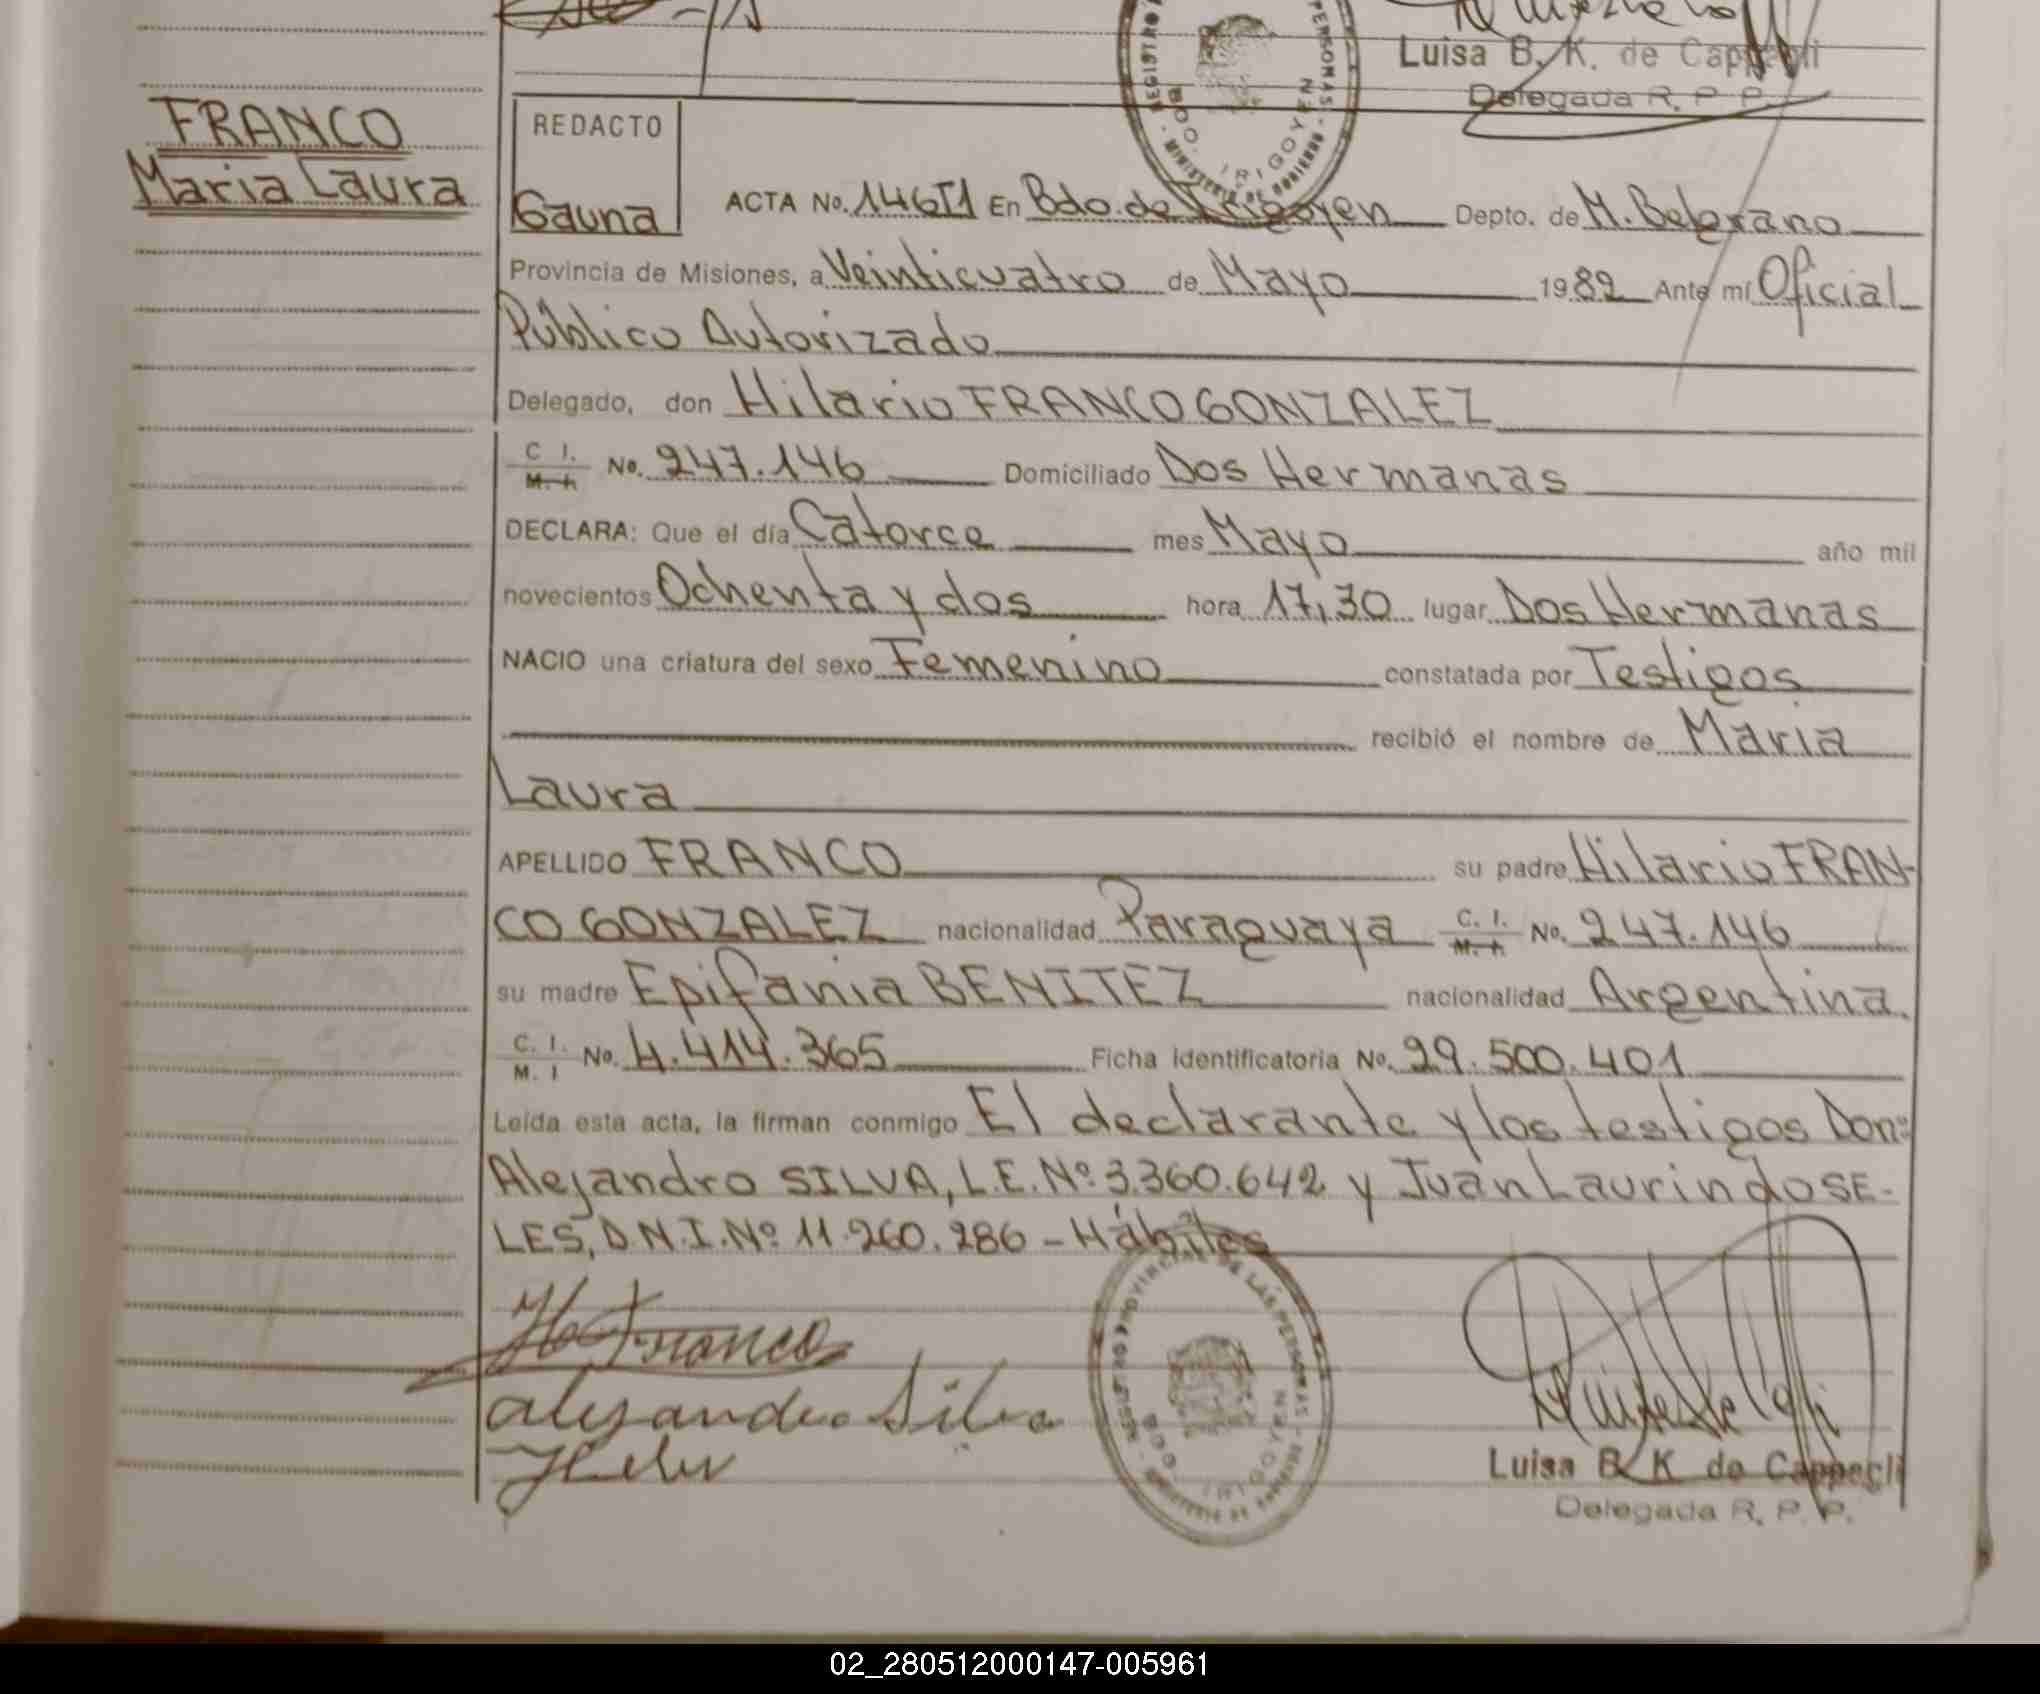 Luisa B. K. de Cappelli
Delegada R. P. P.
FRANCO
Maria Laura
REDACTO
Gauna
ACTA No. 146T1 En Bdo. de Irigoyen Depto. de M. Belgrano
Provincia de Misiones, a Veinticuatro de Mayo 1982 Ante mí Oficial
Público Autorizado
Delegado, don Hilario FRANCO GONZALEZ
C I. M. I. No. 247.146 Domiciliado Dos Hermanas
DECLARA: Que el día Catorce mes Mayo año mil
novecientos Ochenta y dos hora 17,30 lugar Dos Hermanas
NACIO una criatura del sexo Femenino constatada por Testigos
recibió el nombre de Maria
Laura
APELLIDO FRANCO su padre Hilario FRAN-
CO GONZALEZ nacionalidad Paraguaya C. I. M. I. No. 247.146
su madre Epifania BENITEZ nacionalidad Argentina.
C. I. M. I No. 4.414.365 Ficha identificatoria No. 29.500.401
Leída esta acta, la firman conmigo El declarante y los testigos Don:
Alejandro SILVA, L.E. Nº 3.360.642 y Juan Laurindo SE-
LES, D.N.I. Nº 11.260.286 - Hábiles
REGISTRO PROVINCIAL DE LAS PERSONAS - MINISTERIO DE GOBIERNO - BDO. IRIGOYEN
H Franco
Alejandro Silva
Luisa B. K de Cappelli
Delegada R. P. P.
02_280512000147-005961